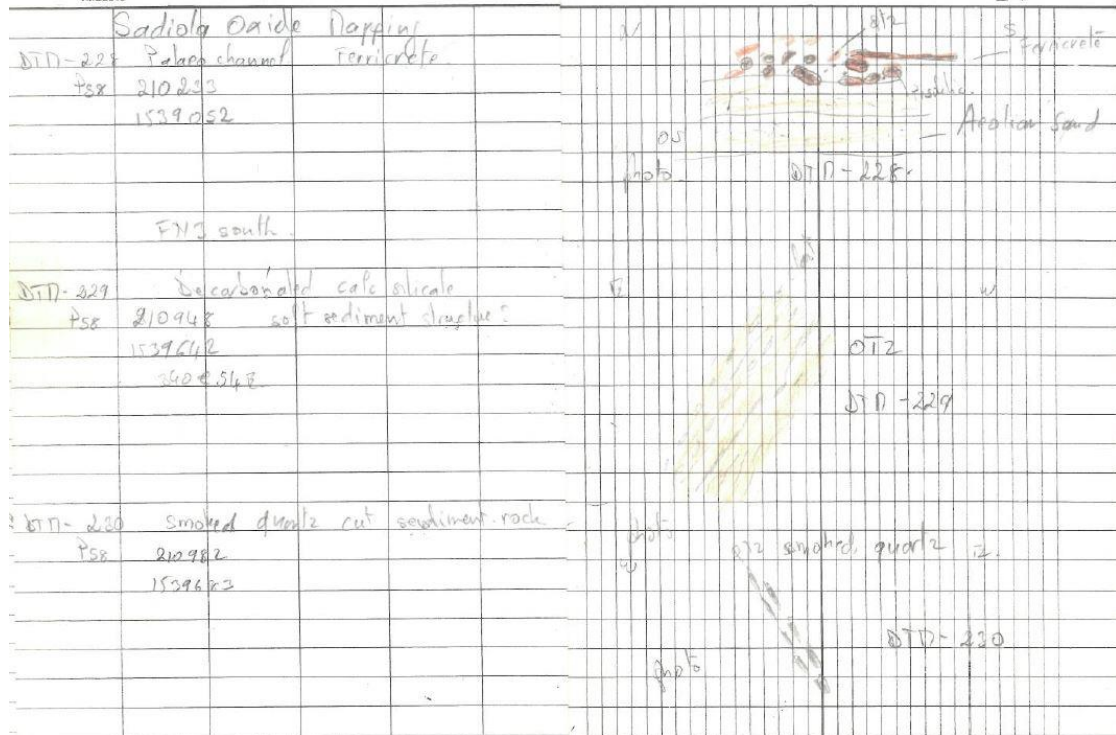 Sadiola Oxide Mapping
DTM-228 Palaeo channel Ferricrete
P58 210233
1539052
FN3 south
DTM-229 Decarbonated calc silicate
P58 210948 soft sediment structure?
1539642
DTM-230 smoked quartz cut sediment rock
P58 210982
1539683
N S
qtz
Ferricrete
Aeolian Sand
OS
photo DTM-228
E W
OT2
DTM-229
photo
W qtz smoked quartz E
DTM-230
photo